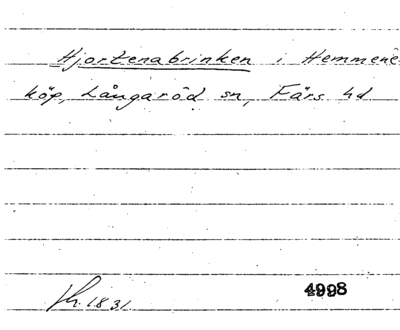 Hjortenabrinken i Hemmene
köp, Långaröd sn, Färs hd
1831
4998